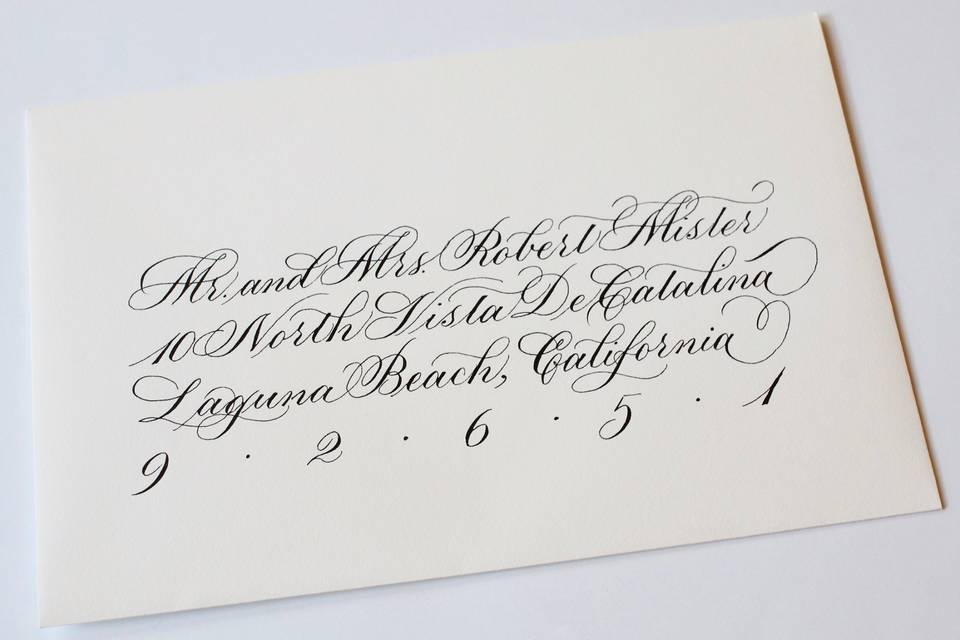 Mr. and Mrs. Robert Mister
10 North Vista De Catalina
Laguna Beach, California
9 · 2 · 6 · 5 · 1